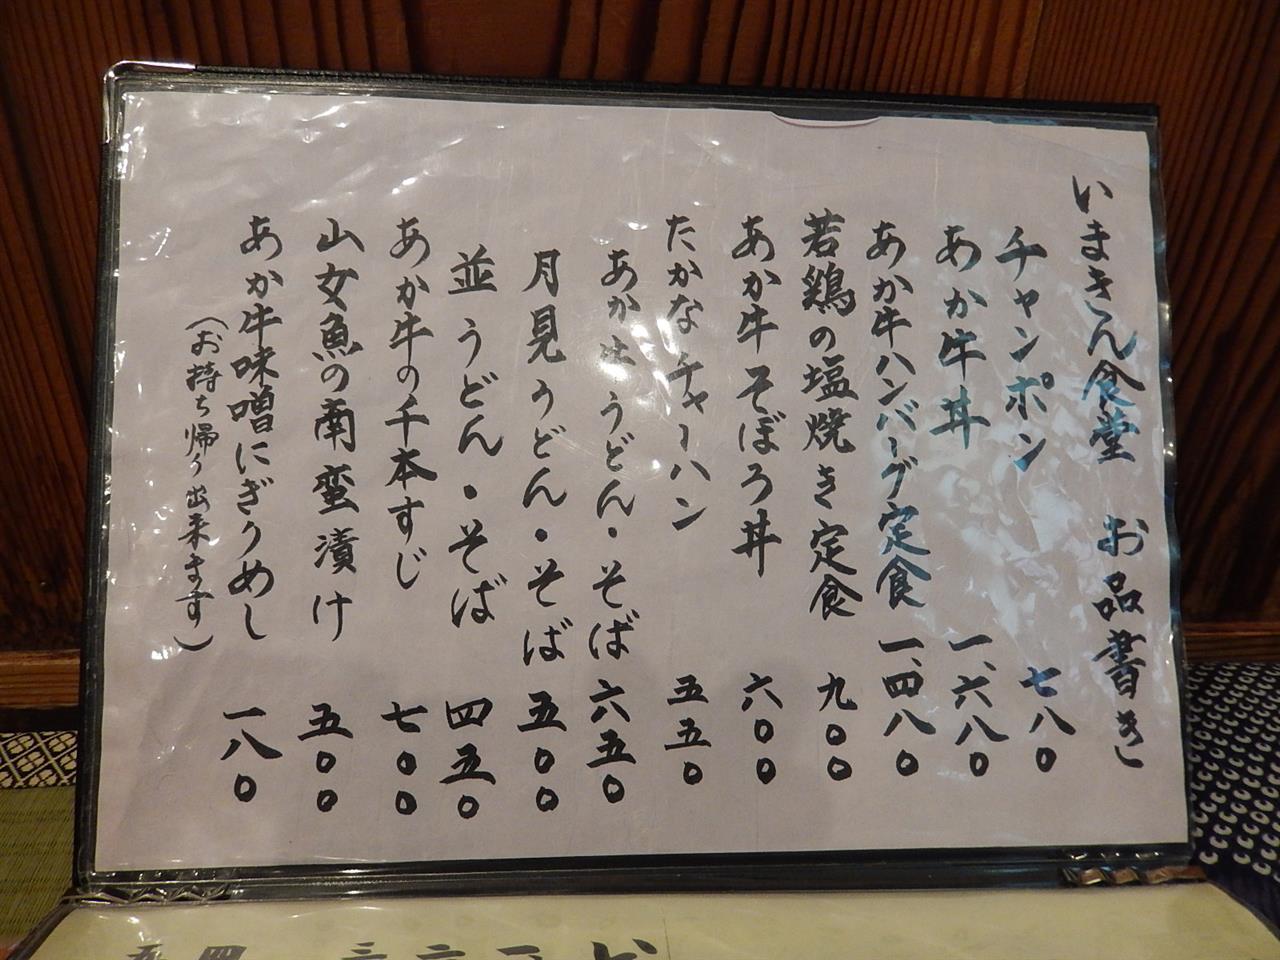 いまきん食堂 お品書き
チャンポン 七八〇
あか牛丼 一、六八〇
あか牛ハンバーグ定食 一、四八〇
若鶏の塩焼き定食 九〇〇
あか牛そぼろ丼 六〇〇
たかなチャーハン 五五〇
あか牛うどん・そば 六五〇
月見うどん・そば 五〇〇
並うどん・そば 四五〇
あか牛の千本すじ 七〇〇
山女魚の南蛮漬け 五〇〇
あか牛味噌にぎりめし 一八〇
（お持ち帰り出来ます）